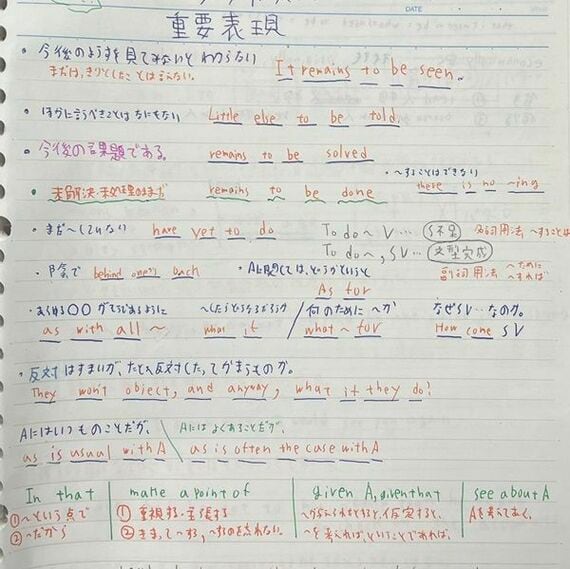 DATE
重要表現
・今後のようすを見てみないとわからない
まだはっきりとしたことは言えない。 It remains to be seen.
・ほかに言うべきことはなにもない Little else to be told.
・今後の課題である。 remains to be solved
・〜することはできない
・未解決・未処理のままだ remains to be done there is no ~ing
・まだ〜していない have yet to do To do ~ V… S不足 名詞用法 〜すること
To do ~, SV… 文型完成 副詞用法 〜ために
・陰で behind one's back ・Aに関しては、どうかというと As for
・あらゆる〇〇がそうであるように 〜したらどうなるだろうか 何のために〜か なぜSV…なのか。
as with all ~ what if what ~ for How come SV
・反対はすまいが、たとえ反対したってかまうものか。
They won't object, and anyway, what if they do?
Aにはいつものことだが、 Aにはよくあることだが、
as is usual with A as is often the case with A
In that make a point of given A, given that see about A
①〜という点で ①重視する・主張する Aを考えておく、
②〜だから
〜を考えれば、ということであれば、